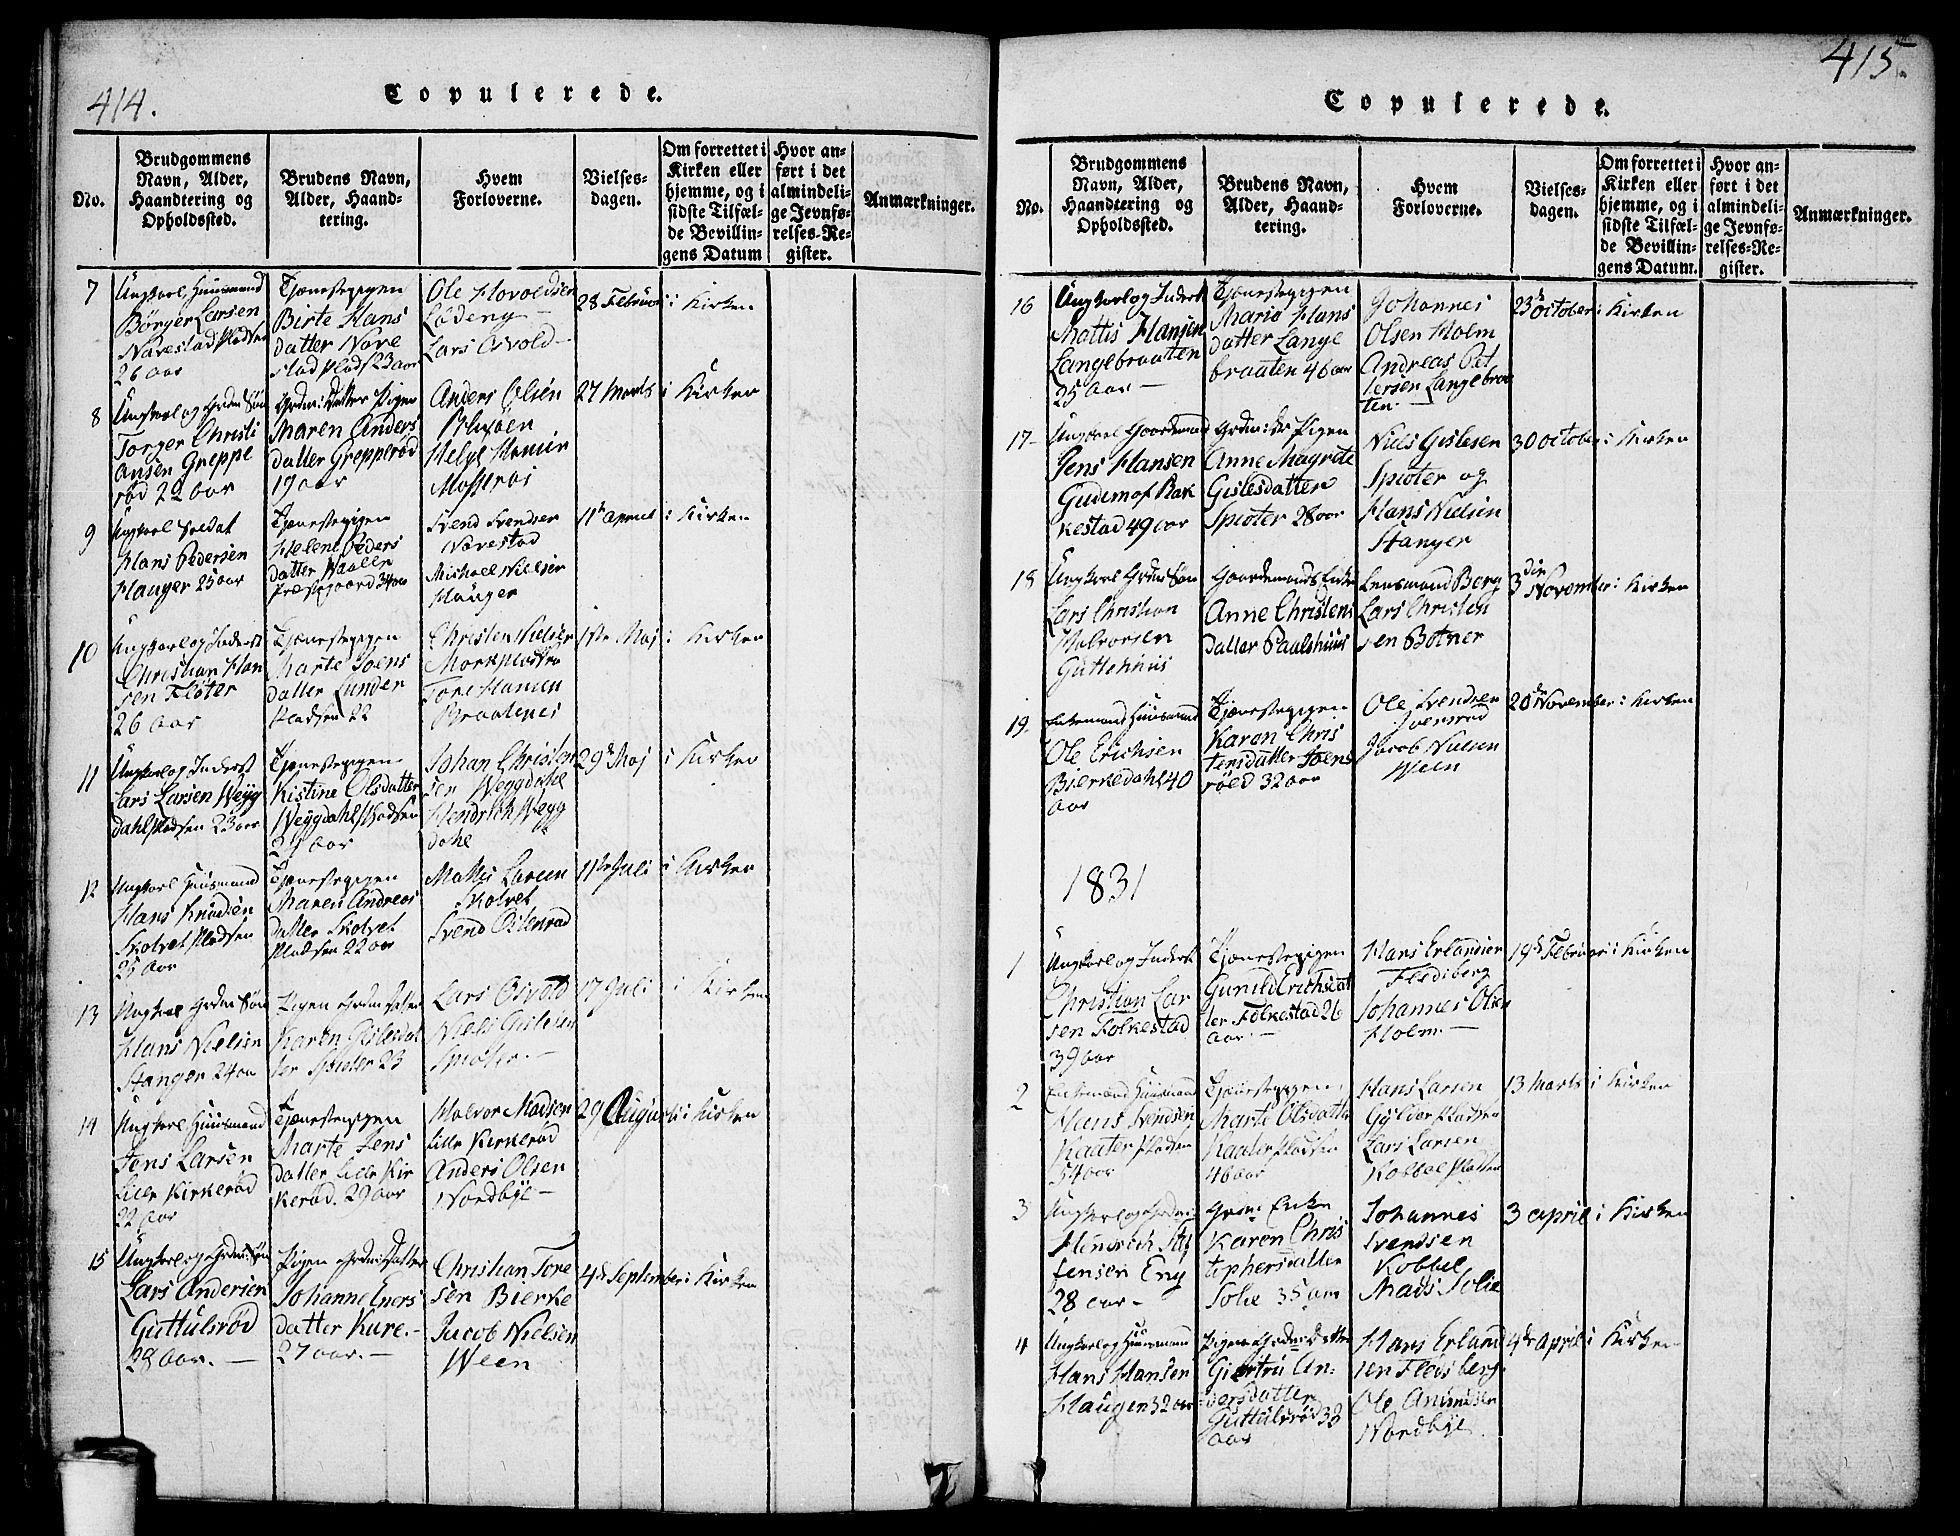 414.
Copulerede.
No.
Brudgommens
Navn, Alder,
Haandtering og
Opholdssted.
Brudens Navn,
Alder, Haand-
tering.
Hvem
Forloverne.
Vielses-
dagen.
Om forrettet i
Kirken eller
hjemme, og i
sidste Tilfæl-
de Bevillin-
gens Datum
Hvor an-
ført i det
almindeli-
ge Jevnfø-
relses-Re-
gister.
Anmærkninger.
7
Ungkarl Huusmand
Børger Larsen
Navestad Pladsen
26 aar
Tjenestepigen
Birte Hans
datter Nave
stad Plads 23 aar
Ole Havoldsen
Lødeng
Lars Osvold
28 Februar
i Kirken
8
Ungkarl og Grdm: Søn
Torger Christi
ansen Greppe
rød 22 aar
Grdm: Datter Pigen
Maren Anders
datter Grepperød
19 aar
Anders Olsen
Helge Hansen
27 Marts
i Kirken
9
Ungkarl Soldat
Hans Pedersen
Hauger 25 aar
Tjenestepigen
Helene Peders
datter Waaler
Præstegaard 34 aar
Svend Svendsen
Navestad
Michael Nielsen
Hauger
11te April
i Kirken
10
Ungkarl og Inderst
Christian Han
sen Fløter
26 aar
Tjenestepigen
Marte Joens
datter Lunder
Pladsen 22
Christen Nielsen
Tore Hansen
Braatenes
1ste Maj
i Kirken
11
Ungkarl og Inderst
Lars Larsen Wegg
dahl Pladsen 23 aar
Tjenestepigen
Kistine Olsdatter
Weggdahl Pladsen
29 aar
Johan Christen
sen Weggdahl
Hendrich Wegg
dahl
29de Maj
i Kirken
12
Ungkarl Huusmand
Hans Knudsen
Skolvet Pladsen
25 Aar
Tjenestepigen
Maren Andreas
datter Skolvet
Pladsen 22 aar
Mattis Larsen
Skolvet
Svend Ostenrød
11te Juli
i Kirken
13
Ungkarl Grdm Søn
Hans Nielsen
Stanger 24 aar
Pigen Grdm: Datter
Karen Gislesdat
ter Spioter 23
Lars Osvold
Niels Gislesen
Spiøter.
17 Juli
i Kirken
14
Ungkarl Huusmand
Jens Larsen
Lille Kirkerød
22 Aar
Tjenestepigen
Marte Jens
datter Lille Kir
kerød. 29 aar
Halvor Madsen
Lille Kirkerød
Anders Olsen
Nordbye
29 August
i Kirken
15
Ungkarl og Grdm: Søn
Lars Andersen
Guttulsrød
28 Aar.
Pigen Grdm: Datter
Johanne Eners
datter Kure.
27 aar.
Christian Tore
sen Bierke
Jacob Nielsen
Ween
4de September
i Kirken
415.
Copulerede.
No.
Brudgommens
Navn, Alder,
Haandtering og
Opholdssted.
Brudens Navn,
Alder, Haand-
tering.
Hvem
Forloverne.
Vielses-
dagen.
Om forrettet i
Kirken eller
hjemme, og i
sidste Tilfæl-
de Bevillin-
gens Datum.
Hvor an-
ført i det
almindeli-
ge Jevnfø-
relses-Re-
gister.
Anmærkninger.
16
Ungkarl og Inderst
Mattis Hansen
Langebraaten
25 Aar
Tjenestepigen
Maria Hans
datter Lange
braaten 46 aar
Johannes
Olsen Holm
Andreas Pet
tersen Langebraa
ten
23de October
i Kirken
17
Ungkarl Gaardmand
Jens Hansen
Gudim af Rak
kestad 49 aar
Grdm: Dr Pigen
Anne Magrete
Gislesdatter
Spioter 28 aar
Niels Gislesen
Spioter og
Hans Nielsen
Stanger
30 October
i Kirken
18
Ungkarl Grdm Søn
Lars Christian
Halvorsen
Guttehuus
Gaardmands Enke
Anne Christens
datter Paulshuus
Lensmand Berg
Lars Christen
sen Botner
3die November
i Kirken
19.
Enkemand Huusmand
Ole Erichsen
Bierkedahl 40
aar
Tjenestepigen
Karen Chris
tensdatter Joens
røed 32 aar
Ole Svendsen
Iversrød
Jacob Nielsen
Ween
20de November
i Kirken
1831
1
Ungkarl og Inderst
Christian Lar
sen Folkestad
39 aar
Tjenestepigen
Gunild Erichsdat
ter Folkestad 26
aar.
Hans Erlandsen
Fledsberg
Johannes Olsen
Holm.
19de Februar
i Kirken
2
Enkemand Huusmand
Hans Svendsen
Kaater Pladsen
54 aar
Tjenestepigen
Marte Olsdatter
Kaater Pladsen
46 aar
Hans Larsen
Gylder Pladsen
Lars Larsen
Kobbel Pladsen
13 Marts
i Kirken
3
Ungkarl og Grdm:
Hendrich
Jensen Eng
28 aar
Grdm: Enke
Karen Chris
tophersdatter
Solie 35 aar
Johannes
Svendsen
Kobbel
Mads Solie
3 April
i Kirken
4
Ungkarl og Huusmand
Hans Hansen
Haugen 32 aar
Pigen Grdm: Datter
Giertru An-
dersdatter
Guttulsrød 38
aar
Hans Erland
sen Fledsberg
Ole Amundsen
Nordbye
4de April
i Kirken